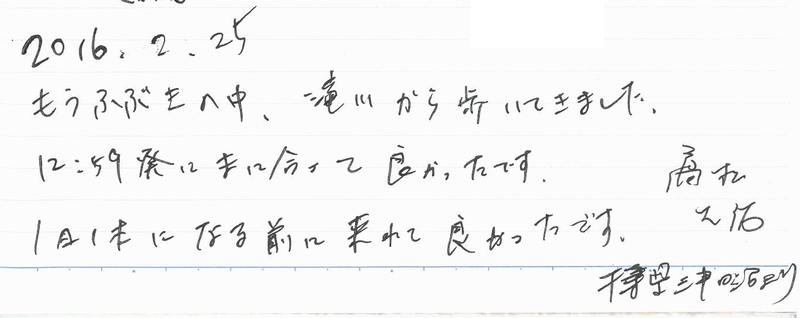 2016.2.25
もうふぶきの中、滝川から歩いてきました。
12:59発にまに合って良かったです.
1日1本になる前に来れて良かったです。
高松